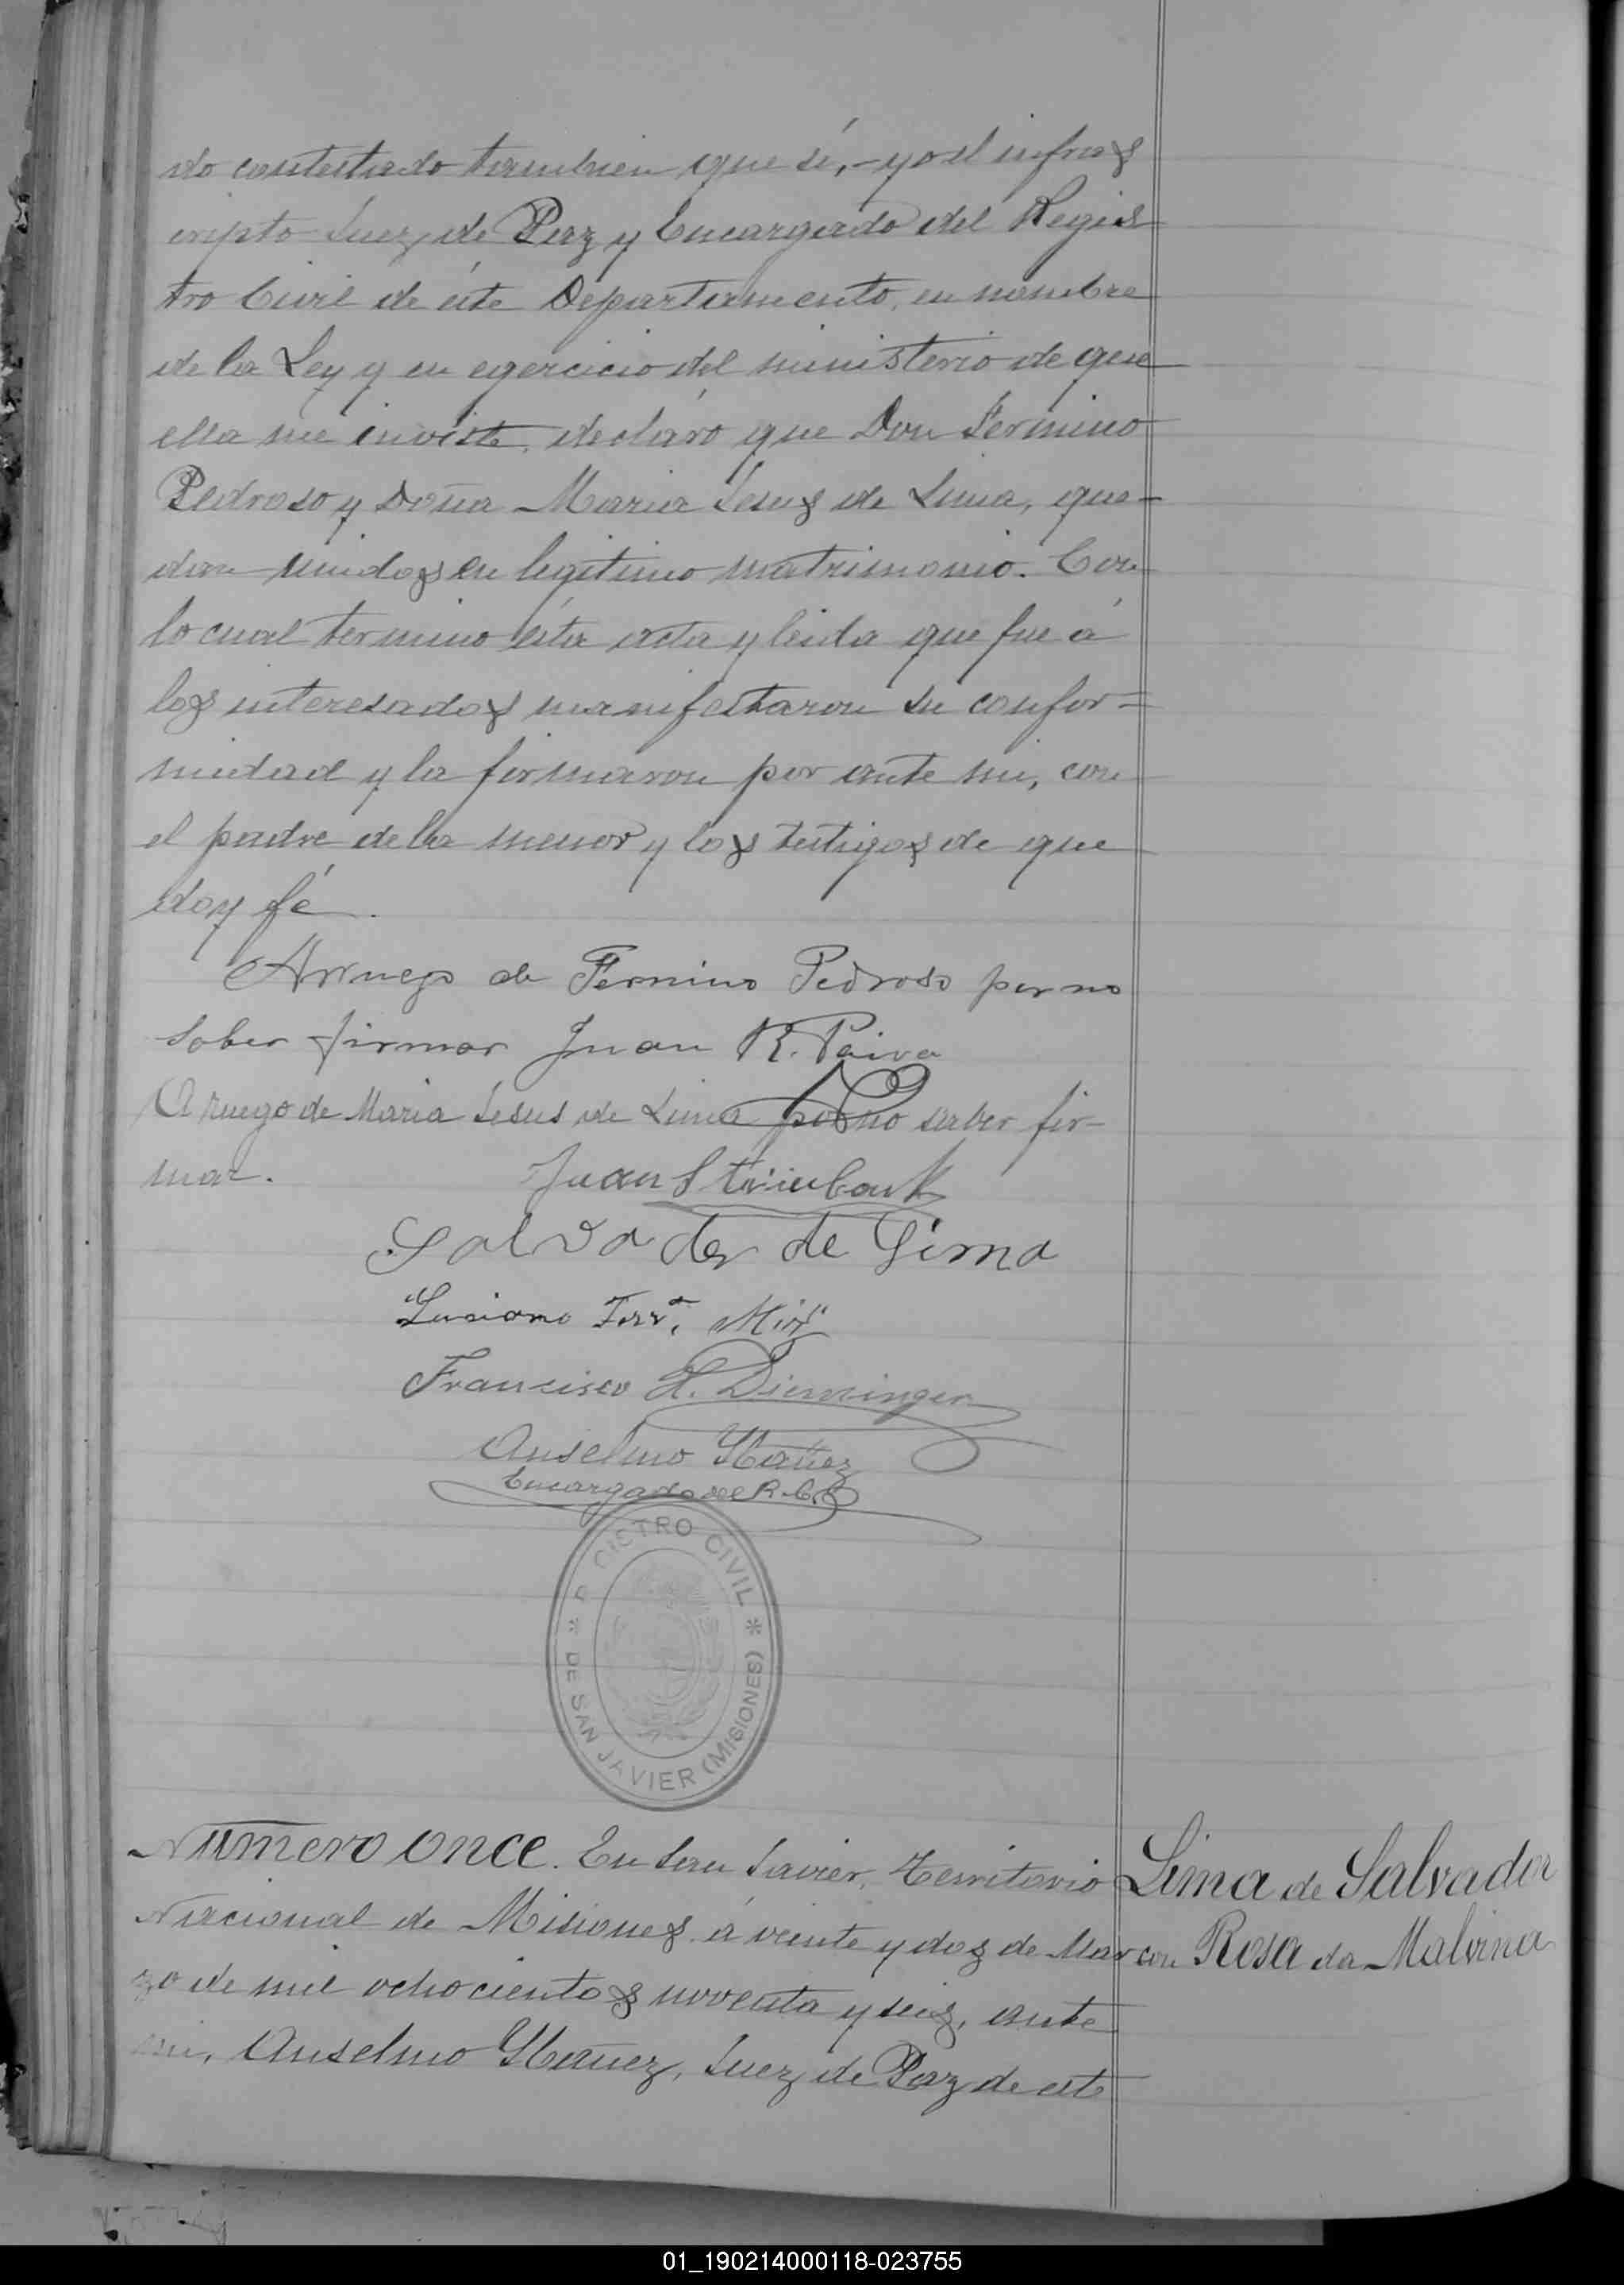 do contestado tambien que sí, - yo el infras
cripto Juez de Paz y Encargado del Regis
tro Civil de éste Departamento, en nombre
de la Ley y en egercicio del ministerio de que
ella me inviste, decláro que Don Fermino
Pedroso y Doña Maria Jesus de Lima, que-
dan unidos en legitimo matrimonio. Con
lo cual termino ésta acta y leida que fue á
los interesados manifestaron su confor=
midad y la firmaron por ante mi, con
el padre de la menor y los testigos de que
doy fé.
Arruego de Fermino Pedroso por no
saber firmar Juan R. Paiva
A ruego de Maria Jesus de Lima por no saber fir-
mar.
Juan
Salvador de Lima
Luciano Ferrª.
Francisco H.
Anselmo Ybañez
Encargado del R. C.
REGISTRO CIVIL
* DE SAN JAVIER (MISIONES) *
Número once. En San Javier, Territorio
Nacional de Misiones á veinte y dos de Mar
zo de mil ochocientos noventa y seis, ante
mi, Anselmo Ybañez, Juez de Paz de est
Lima de Salvador
con Rosa da Malvina
01_190214000118-023755